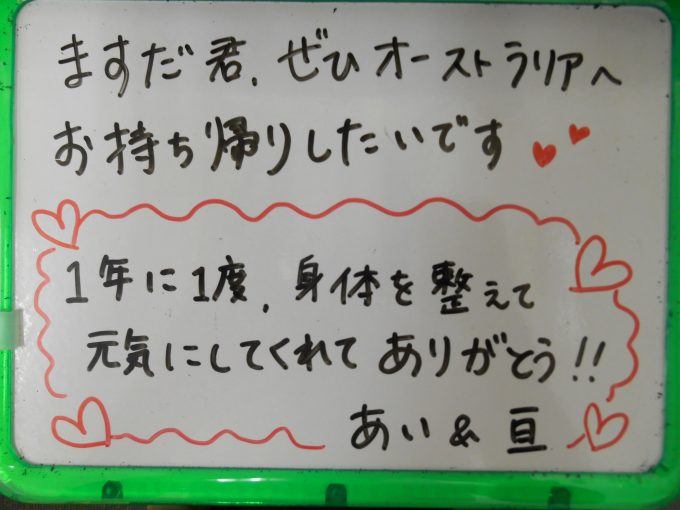 ますだ君、ぜひオーストラリアへ
お持ち帰りしたいです
1年に1度、身体を整えて
元気にしてくれてありがとう!!
あい & 亘